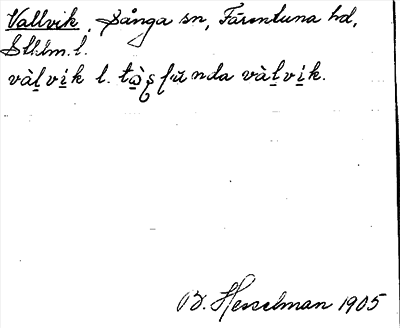 Vallvik, Sånga sn, Färentuna hd,
Sthlm. l.
vàḷvi̱k l. to̱rsfunda vàḷvi̱k.
B. Hesselman 1905